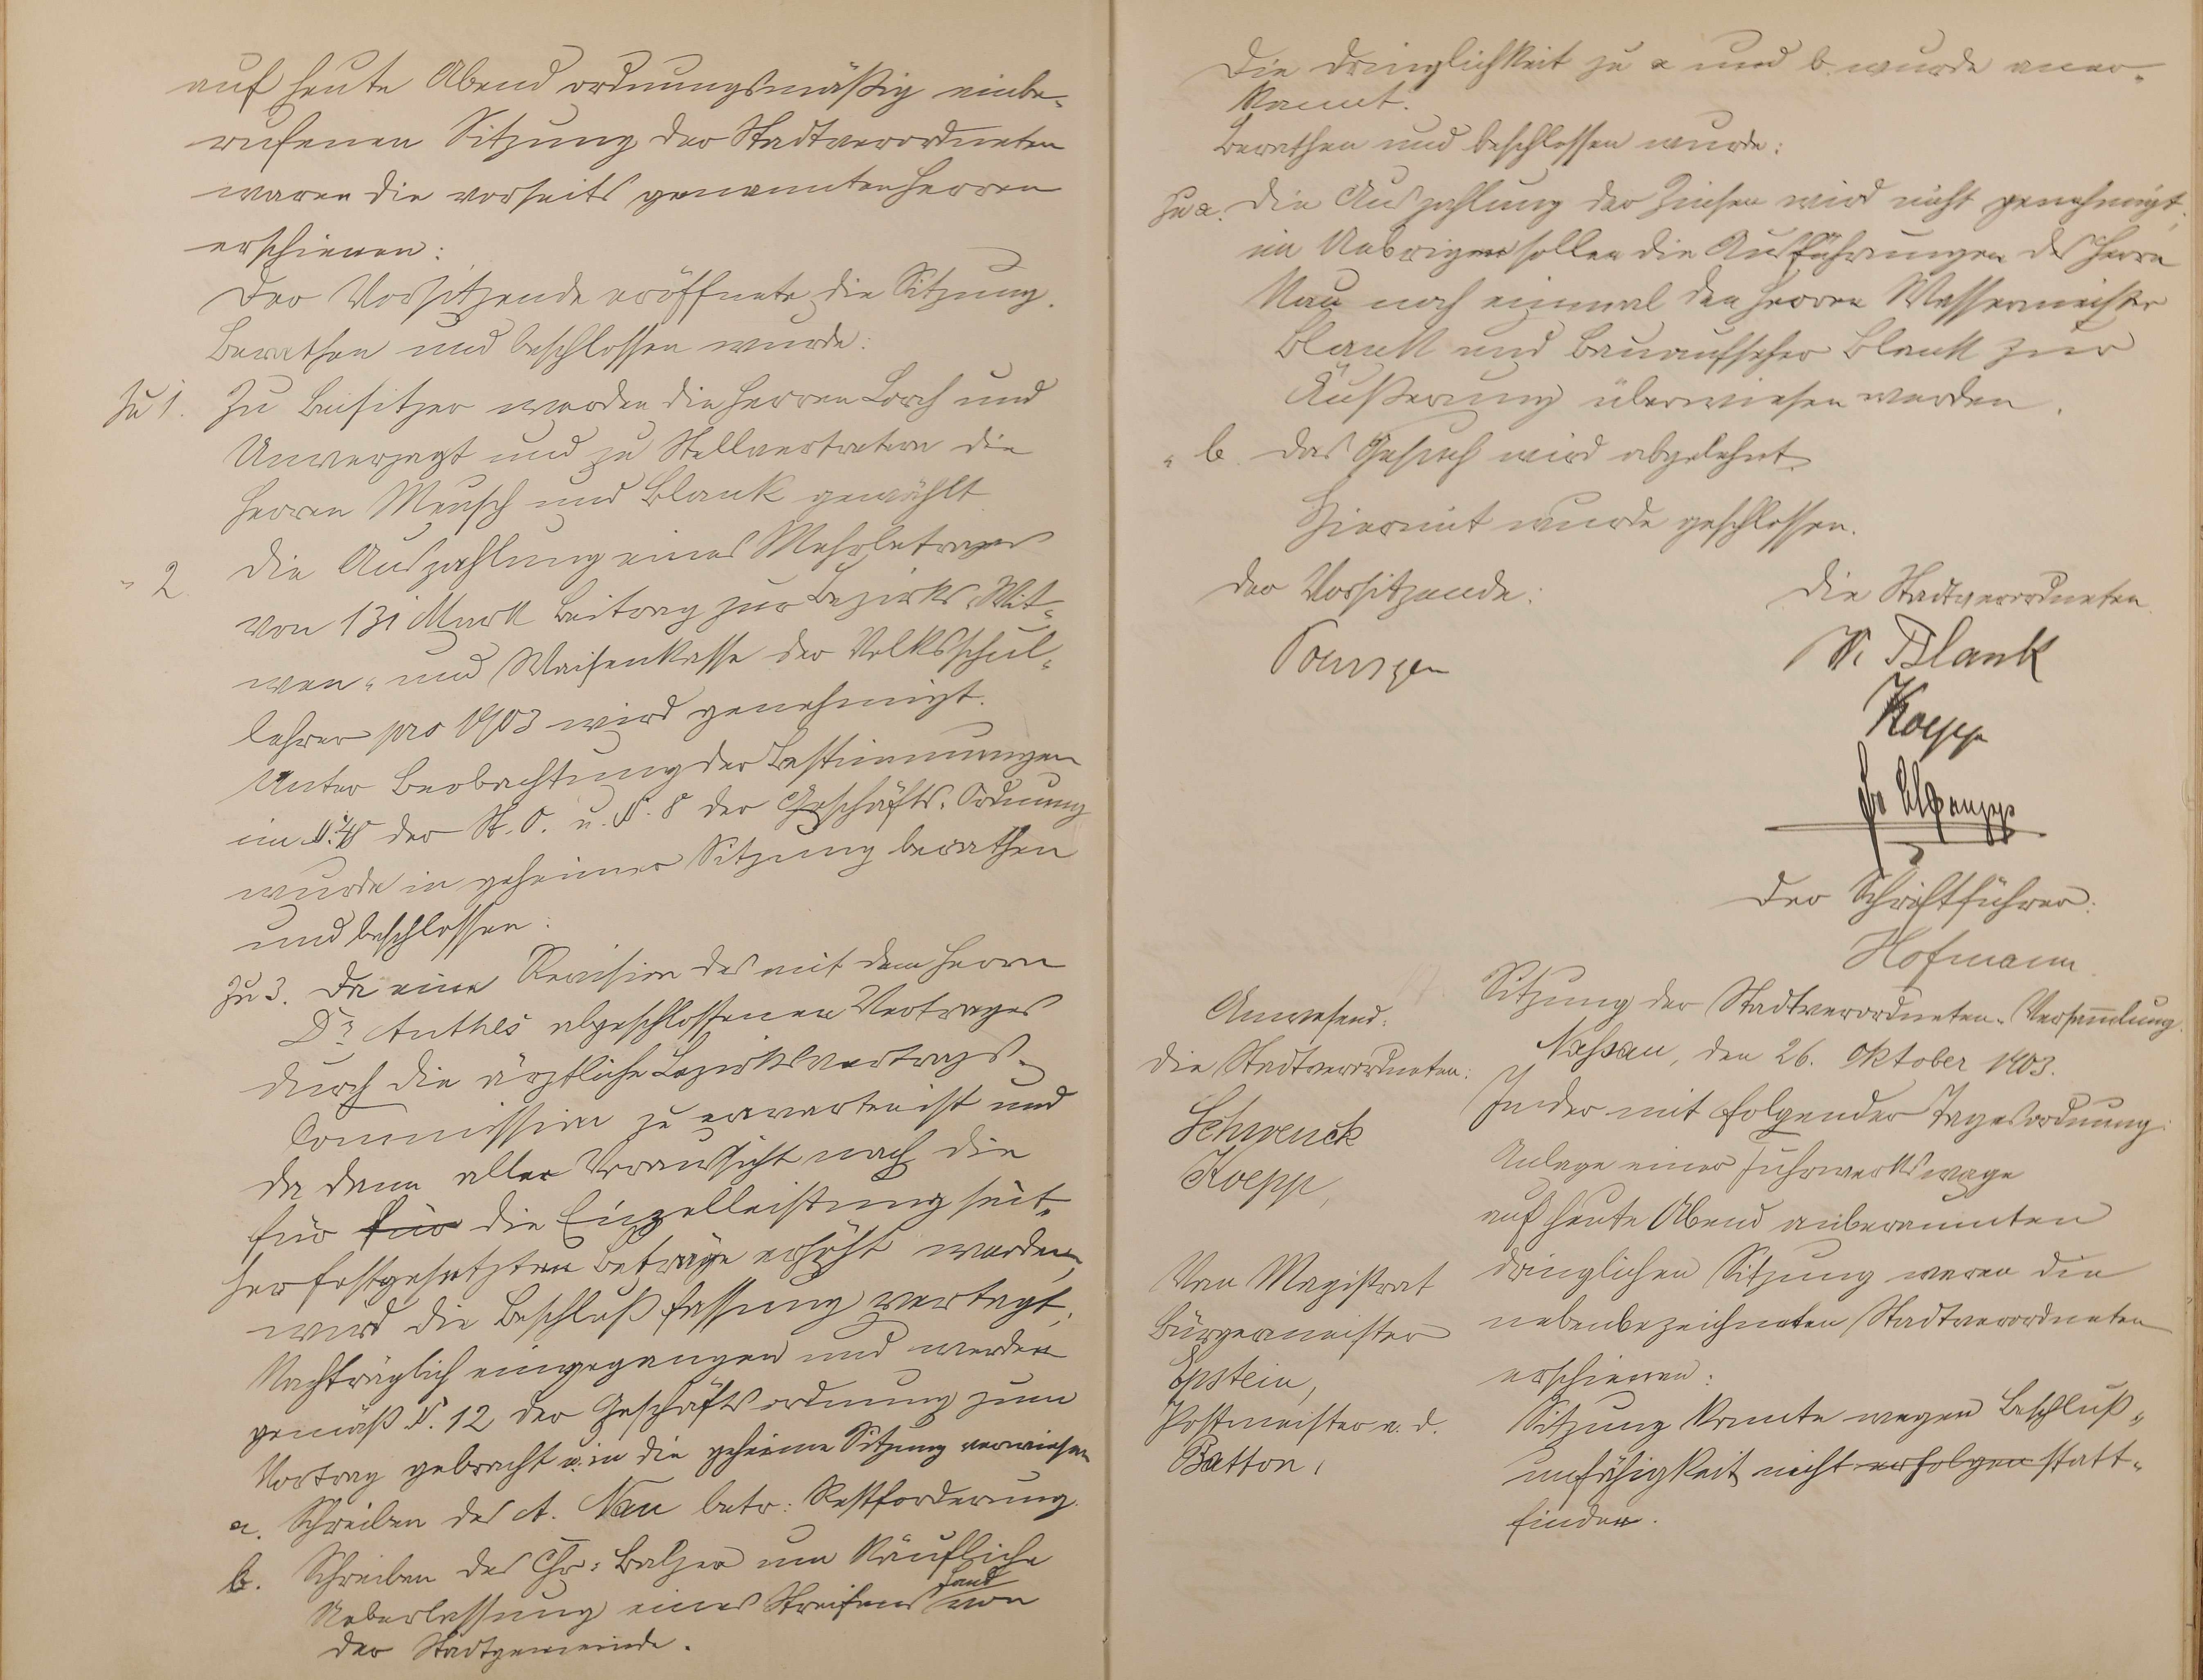 auf heute Abend ordnungsmäßig einbe-
rufenen Sitzung der Stadtverordneten
waren die vorseits genannten Herren
erschienen:
Der Vorsitzende eröffnete die Sitzung.
Berathen und beschlossen wurde:
Zu 1. Zu Beisitzer werden die Herren Lorch und
Unverzagt und zu Stellvertretern die
Herren Mensch und Blank gewählt
" 2 Die Auszahlung eines Mehrbetrages
von 131 Mark Beitrag zur Bezirks Wit-
wen- und Waisenkasse der Volksschul-
lehrer pro 1903 wird genehmigt.
Unter Beobachtung der Bestimmungen
im §. 48 der St. O. u. §. 8 der Geschäfts-Ordnung
wurde in geheimer Sitzung berathen
und beschlossen:
Zu 3. Da eine Revision des mit dem Herrn
Dr Anthes abgeschlossenen Vertrages
durch die ärztliche Bezirksvertrags-
Commission zu erwarten ist und
da dann aller Voraussicht nach die
für für die Einzelleistung seit-
her festgesetzten Beträge erhöht werden,
wird die Beschlußfassung vertagt.
Nachträglich eingegangen und werden
gemäß §. 12 der Geschäftsordnung zum
Vortrag gebracht u. in die geheime Sitzung verwiesen
a. Schreiben des A. Nau betr: Restforderung.
b. Schreiben des Chr: Balzer um käufliche
Ueberlassung eines Streifens Land von
der Stadtgemeinde.
Die Dringlichkeit zu a und b. wurde aner-
kannt.
Berathen und beschlossen wurde:
Zu a. Die Auszahlung der Zinsen wird nicht genehmigt,
im Uebrigen sollen die Ausführungen des Herrn
Nau noch einmal den Herren Wassermeister
Blank und Bauaufseher Blank zur
Äußerung überwiesen werden.
" b. Das Gesuch wird abgelehnt.
Hiermit wurde geschlossen.
Der Vorsitzende:
Die Stadtverordneten.
W. Blank
Koepp
Der Schriftführer:
Hofmann.
Anwesend:
Die Stadtverordneten:
Schwenck
Koepp,
Von Magistrat
Bürgermeister
Epstein,
Postmeister a. d.
Batton,
Sitzung der Stadtverordneten-Versammlung.
Nassau, den 26. Oktober 1903.
In der mit folgender Tagesordnung:
Anlage einer Fuhrwerkswage
auf heute Abend anberaumten
dringlichen Sitzung waren die
nebenbezeichneten Stadtverordneten
erschienen:
Sitzung konnte wegen Beschluß-
unfähigkeit nicht erfolgen statt-
finden.